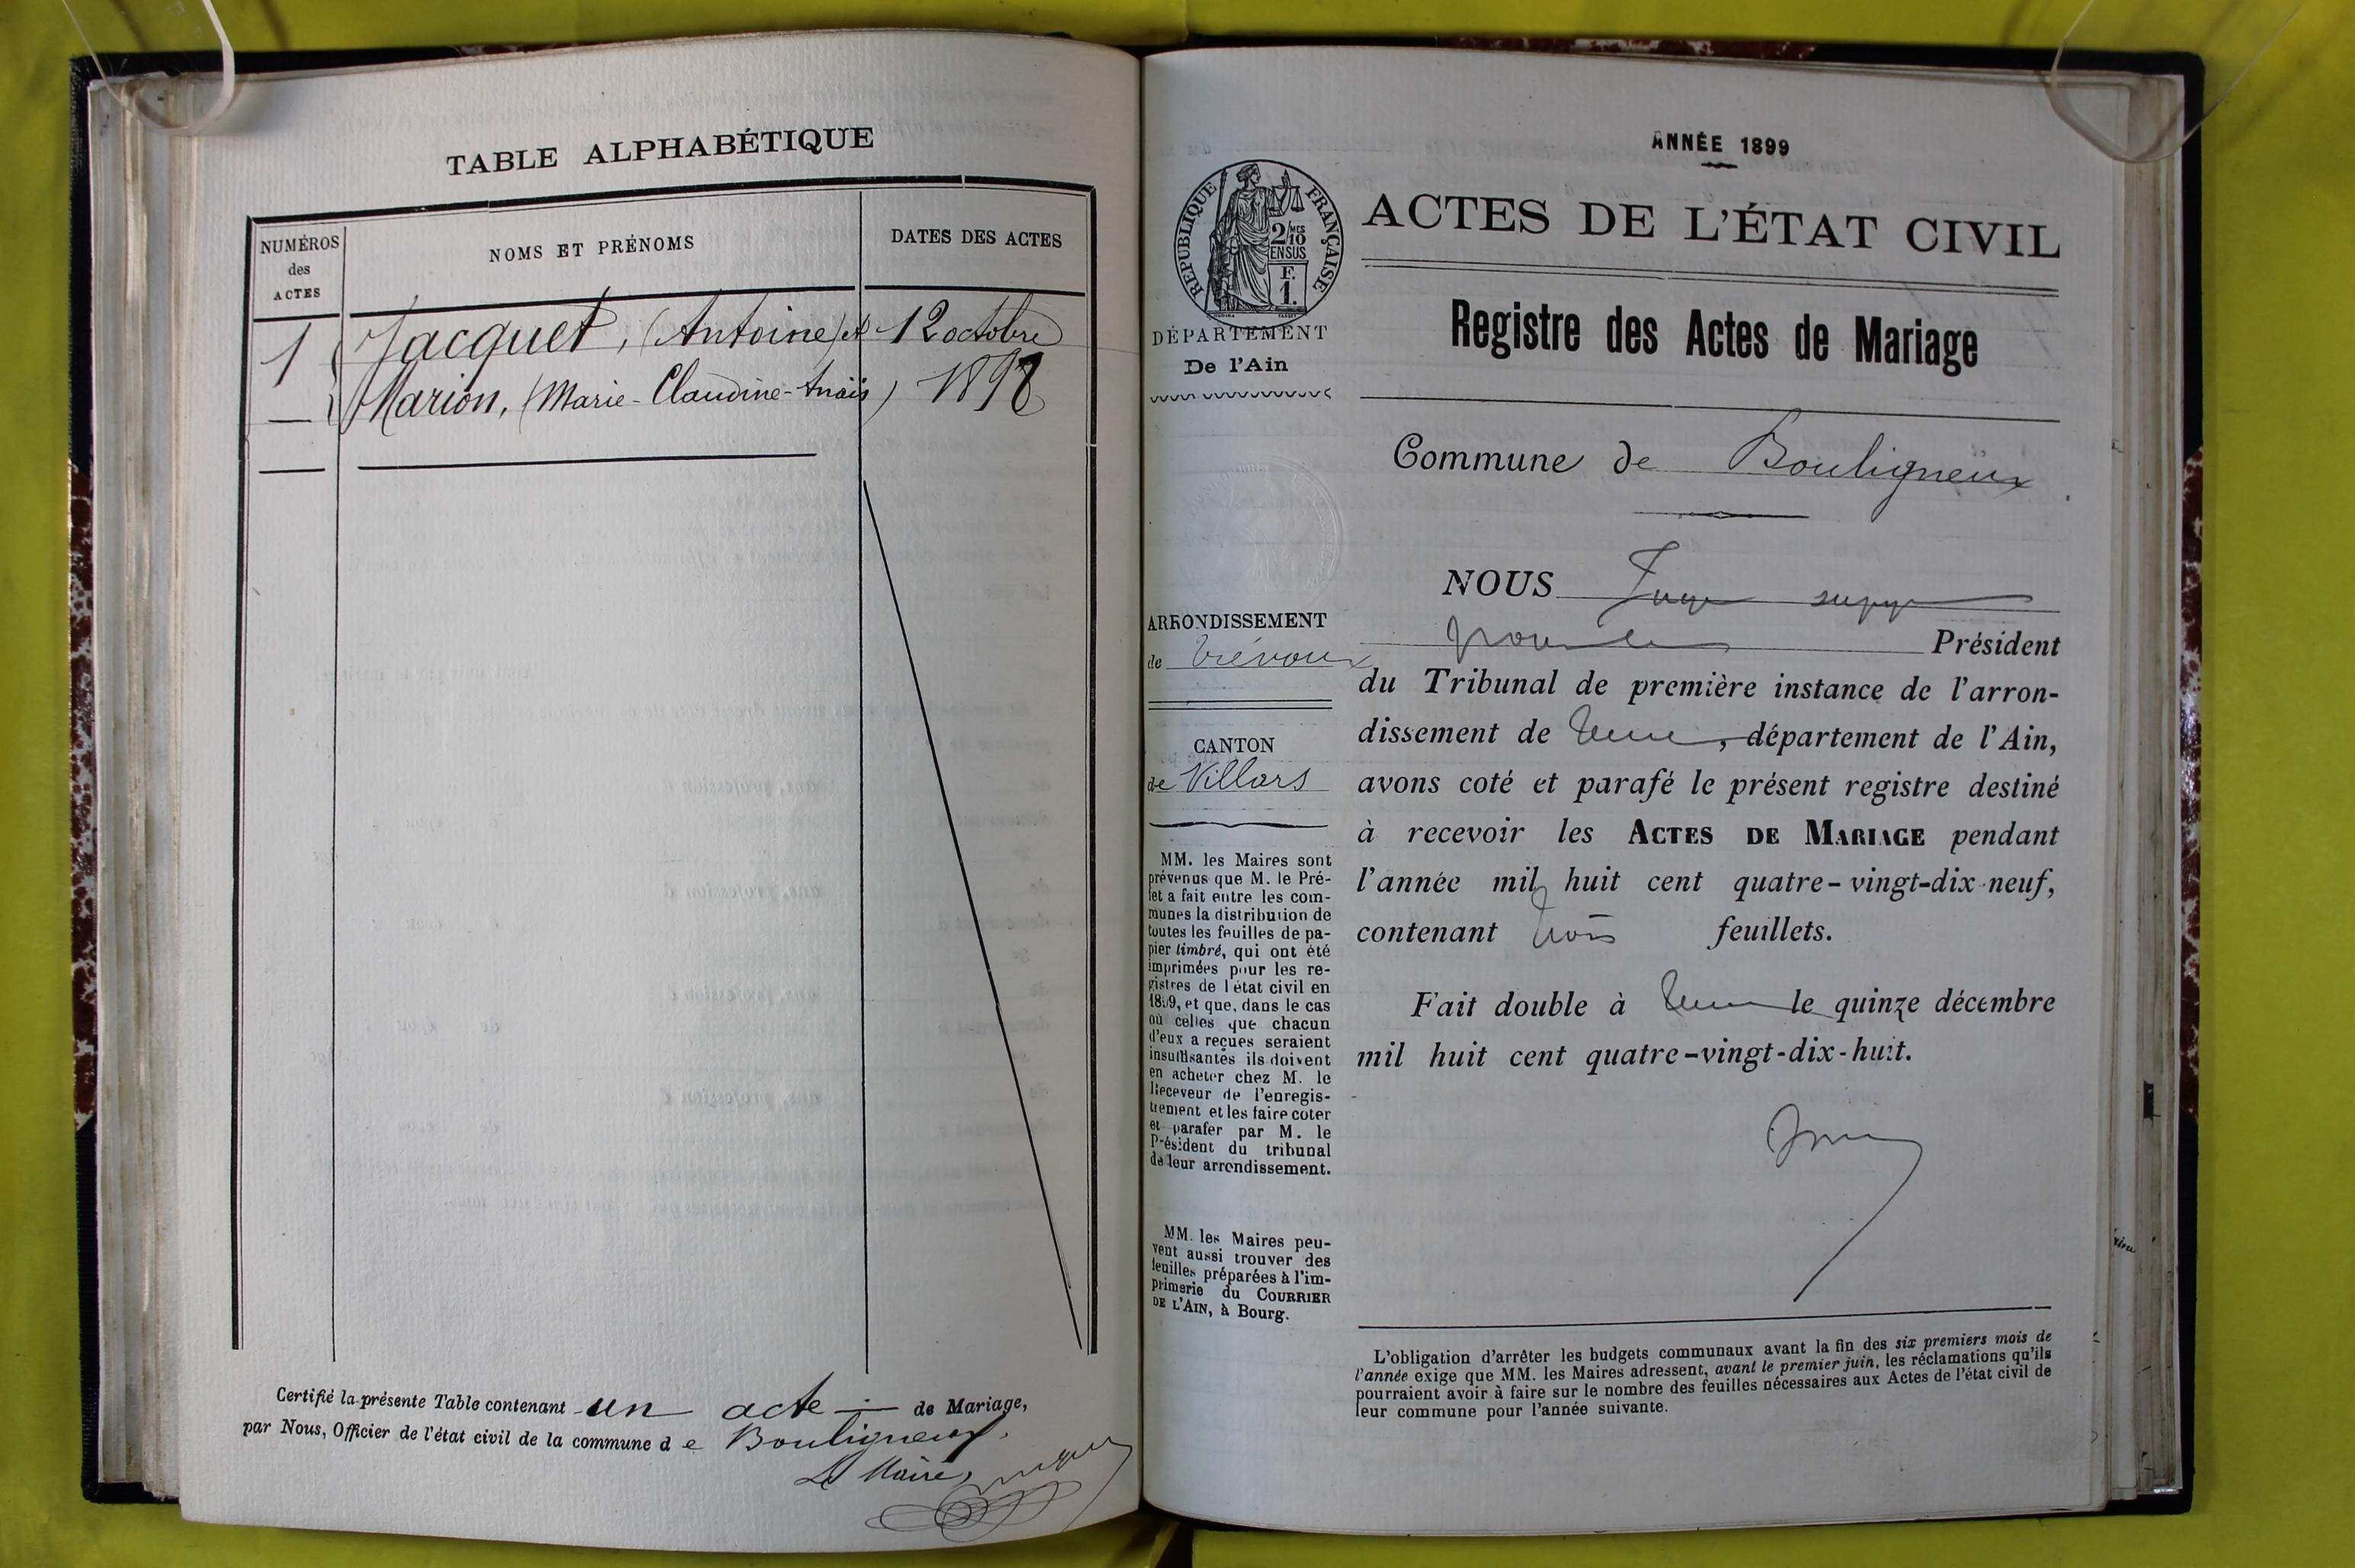 TABLE ALPHABÉTIQUE
NUMÉROS
des
ACTES
NOMS ET PRÉNOMS
DATES DES ACTES
1 Jacquet, (Antoine) et 12 octobre
Marion, (Marie-Claudine-Anaïs) 1898
Certifié la présente Table contenant un acte de Mariage,
par Nous, Officier de l'état civil de la commune de Bouligneux.
Le Maire,
ANNÉE 1899
RÉPUBLIQUE FRANÇAISE
2/10 MES
EN SUS
F.
1.
DÉPARTEMENT
De l'Ain
ARRONDISSEMENT
de Trévoux
CANTON
de Villars
MM. les Maires sont
prévenus que M. le Pré-
fet a fait entre les com-
munes la distribution de
toutes les feuilles de pa-
pier timbré, qui ont été
imprimées pour les re-
gistres de l'état civil en
1899, et que, dans le cas
où celles que chacun
d'eux a reçues seraient
insuffisantes ils doivent
en acheter chez M. le
Receveur de l'enregis-
trement et les faire coter
et parafer par M. le
Président du tribunal
de leur arrondissement.
MM. les Maires peu-
vent aussi trouver des
feuilles préparées à l'im-
primerie du COURRIER
DE L'AIN, à Bourg.
ACTES DE L'ÉTAT CIVIL
Registre des Actes de Mariage
Commune de Bouligneux
NOUS Juge
Président
du Tribunal de première instance de l'arron-
dissement de , département de l'Ain,
avons coté et parafé le présent registre destiné
à recevoir les ACTES DE MARIAGE pendant
l'année mil huit cent quatre-vingt-dix-neuf,
contenant trois feuillets.
Fait double à le quinze décembre
mil huit cent quatre-vingt-dix-huit.
L'obligation d'arrêter les budgets communaux avant la fin des six premiers mois de
l'année exige que MM. les Maires adressent, avant le premier juin, les réclamations qu'ils
pourraient avoir à faire sur le nombre des feuilles nécessaires aux Actes de l'état civil de
leur commune pour l'année suivante.